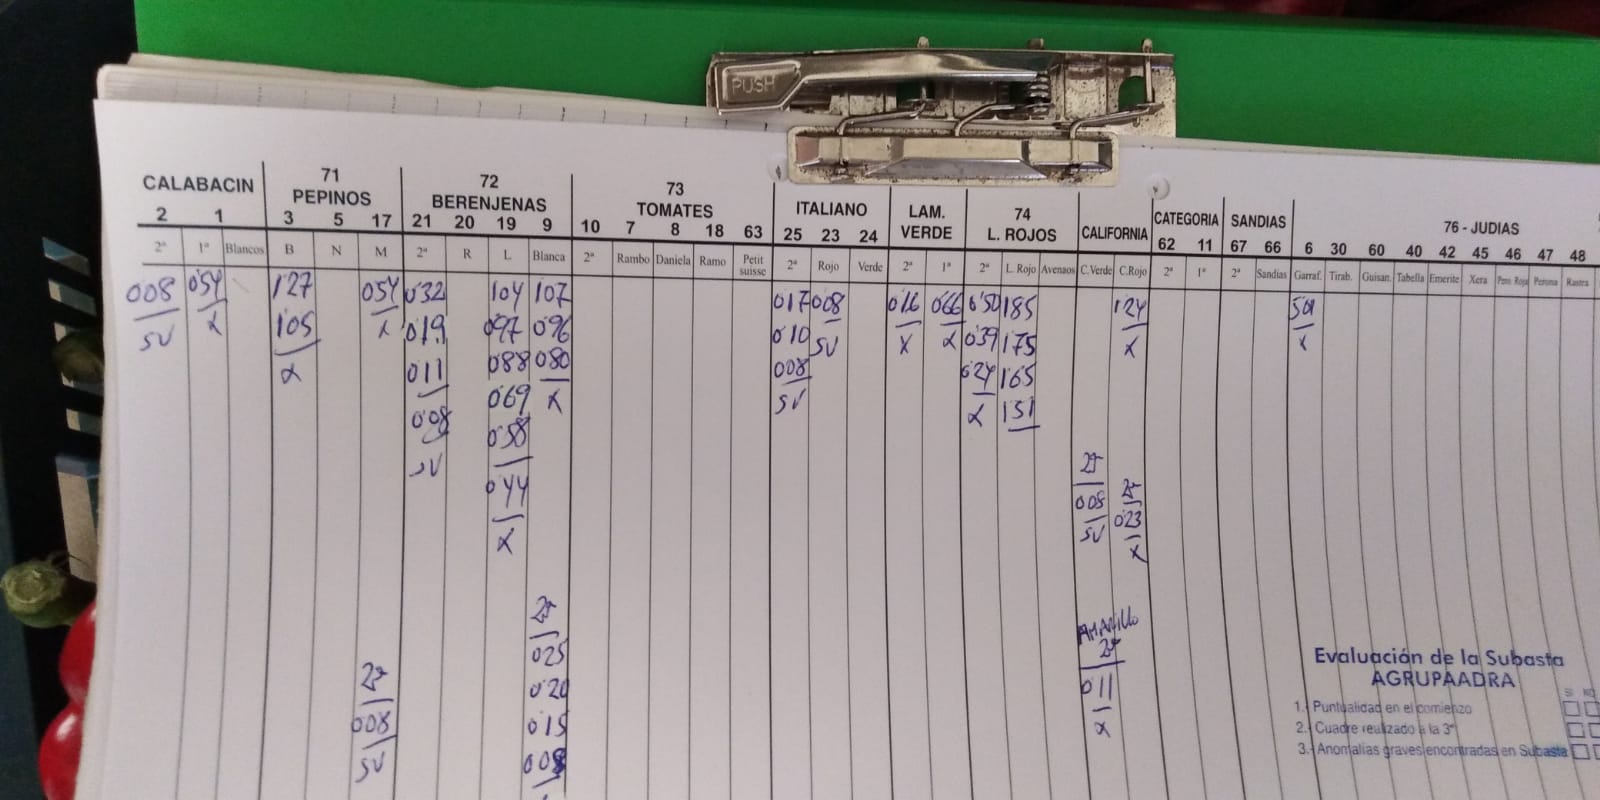 PUSH
CALABACIN 71 PEPINOS 72 BERENJENAS 73 TOMATES ITALIANO LAM. VERDE 74 L. ROJOS CALIFORNIA CATEGORIA SANDIAS 76 - JUDIAS
2 1 3 5 17 21 20 19 9 10 7 8 18 63 25 23 24 62 11 67 66 6 30 60 40 42 45 46 47 48
2ª 1ª Blancos B N M 2ª R L Blanca 2ª Rambo Daniela Ramo Petit suisse 2ª Rojo Verde 2ª 1ª 2ª L. Rojo Avenaos C.Verde C.Rojo 2ª 1ª 2ª Sandias Garraf. Tirab. Guisan. Tabella Emerite Xera Pero. Roja Perona Rastra
008 054 127 054 032 104 107 017 008 016 066 050 185 124 501
SV X 105 X 019 097 096 010 SV X X 039 175 X X
X 011 088 080 008 024 165
008 069 X SV X 151
SV 058
044
X
2ª 2ª
008 023
SV X
2ª
025
020
015
008
2ª
008
SV
AMARILLO
2ª
011
X
Evaluación de la Subasta
AGRUPAADRA
SI NO
1.- Puntualidad en el comienzo
2.- Cuadre realizado a la 3ª
3.- Anomalias graves encontradas en Subasta